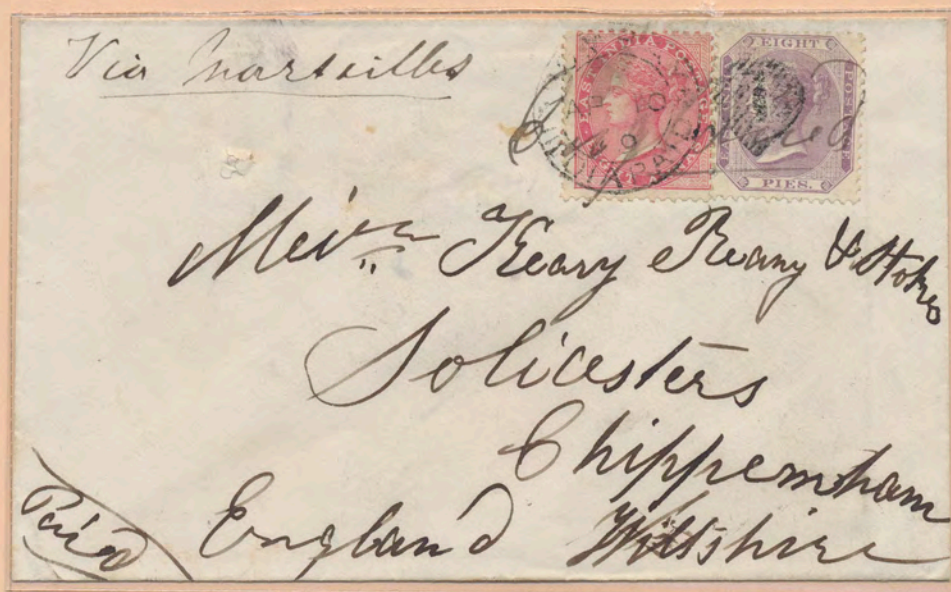 Via Marseilles
EAST INDIA POSTAGE
EIGHT
PIES.
PAID
Mess.rs Keary & Stokes
Solicesters
Chippemham
Wiltshire
England
Paid